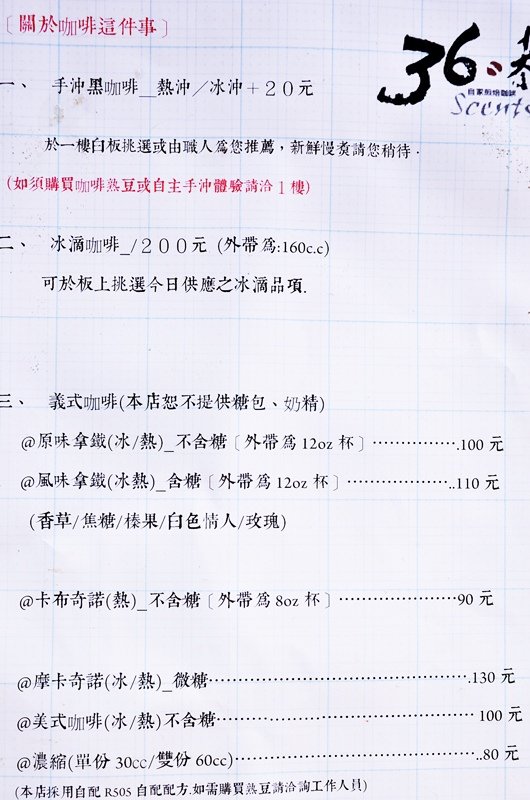 〔關於咖啡這件事〕
36
自家烘焙咖啡
一、 手沖黑咖啡＿熱沖／冰沖＋２０元
於一樓白板挑選或由職人為您推薦，新鮮慢煮請您稍待．
(如須購買咖啡熟豆或自主手沖體驗請洽 1 樓)
二、 冰滴咖啡_/２００元 (外帶為:160c.c)
可於板上挑選今日供應之冰滴品項.
三、 義式咖啡(本店恕不提供糖包、奶精)
@原味拿鐵(冰/熱)_不含糖〔外帶為 12oz 杯〕················.100 元
@風味拿鐵(冰熱)_含糖〔外帶為 12oz 杯〕···················..110 元
(香草/焦糖/榛果/白色情人/玫瑰)
@卡布奇諾(熱)_不含糖〔外帶為 8oz 杯〕······················90 元
@摩卡奇諾(冰/熱)_微糖·················································.130 元
@美式咖啡(冰/熱)不含糖················································ 100 元
@濃縮(單份 30cc/雙份 60cc)·············································..80 元
(本店採用自配 R505 自配配方.如需購買熟豆請洽詢工作人員)